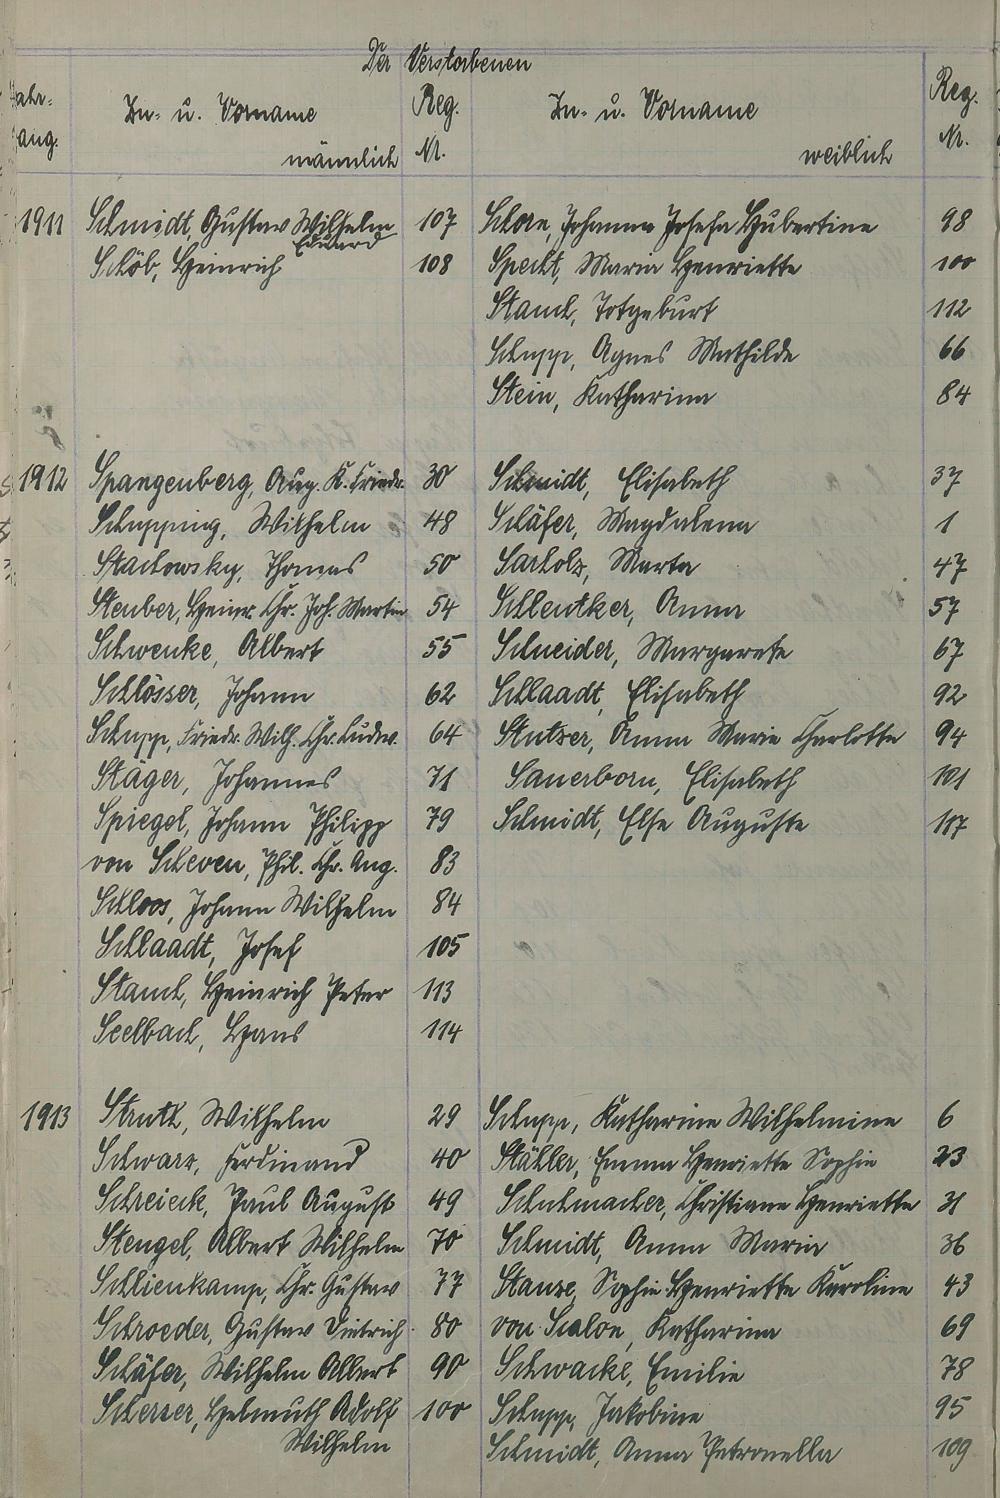 Der Verstorbenen
Jahr- gang. Zu- u. Vorname männlich Reg. Nr. Zu- u. Vorname weiblich Reg. Nr.
1911 Schmidt, Gustav Wilhelm Eduard 107 Schorn, Johanna Josefa Hubertine 98
Schöb, Heinrich 108 Specht, Maria Henriette 100
Stauch, Totgeburt 112
Schupp, Agnes Mathilde 66
Stein, Katharina 84
1912 Spangenberg, Aug. K. Friedr. 30 Schmidt, Elisabeth 37
Schupping, Wilhelm 48 Schäfer, Magdalena 1
Stachowsky, Thomas 50 Sarholz, Marta 47
Steuber, Heinr. Chr. Joh. Martin 54 Schlentker, Anna 57
Schwenke, Albert 55 Schneider, Margarete 67
Schlösser, Johann 62 Schlaadt, Elisabeth 92
Schupp, Friedr. Wilh. Chr. Ludw. 64 Stutzer, Anna Maria Charlotte 94
Stäger, Johannes 71 Sauerborn, Elisabeth 101
Spiegel, Johann Philipp 79 Schmidt, Else Auguste 117
von Scheven, Phil. Chr. Aug. 83
Schloos, Johann Wilhelm 84
Schlaadt, Josef 105
Stauch, Heinrich Peter 113
Seelbach, Hans 114
1913 Struth, Wilhelm 29 Schupp, Katharine Wilhelmine 6
Schwarz, Ferdinand 40 Stähler, Emma Henriette Sophie 23
Schreieck, Paul August 49 Schuhmacher, Christiane Henriette 31
Stengel, Albert Wilhelm 70 Schmidt, Anna Maria 36
Schlienkamp, Chr. Gustav 77 Stanze, Sophie Henriette Karoline 43
Schroeder, Gustav Dietrich 80 von Scalon, Katharina 69
Schäfer, Wilhelm Albert 90 Schwacke, Emilie 78
Scherzer, Helmuth Adolf 100 Schupp, Jakobine 95
Wilhelm Schmidt, Anna Petronella 109